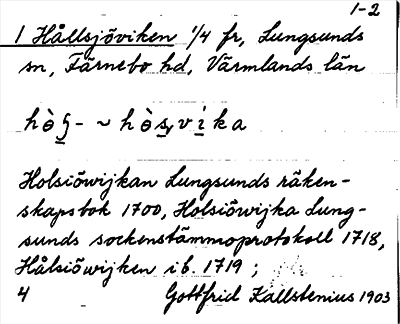 1-2
1 Hållsjöviken 1/4 fr, Lungsunds
sn, Färnebo hd, Värmlands län
~
Holsiöwijkan Lungsunds räken-
skapsbok 1700, Holsiöwijka Lung-
sunds sockenstämmoprotokoll 1718,
Hålsiöwijken ib. 1719 ;
4 Gottfrid Kallstenius 1903